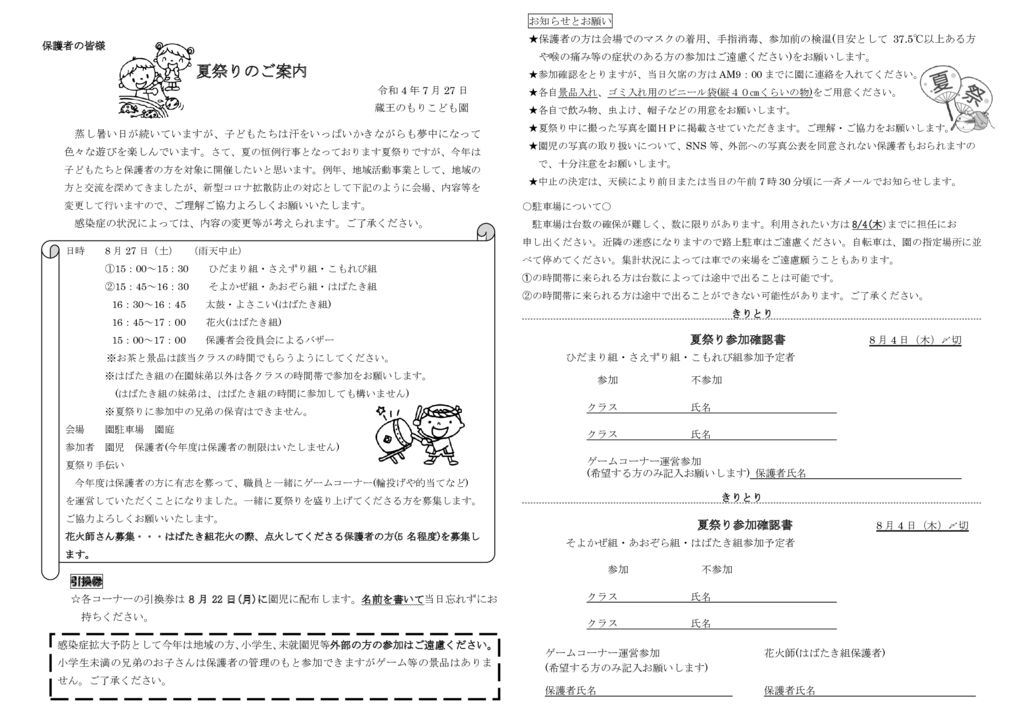 保護者の皆様
夏祭りのご案内
令和4年7月27日
蔵王のもりこども園
蒸し暑い日が続いていますが、子どもたちは汗をいっぱいかきながらも夢中になって
色々な遊びを楽しんでいます。さて、夏の恒例行事となっております夏祭りですが、今年は
子どもたちと保護者の方を対象に開催したいと思います。例年、地域活動事業として、地域の
方と交流を深めてきましたが、新型コロナ拡散防止の対応として下記のように会場、内容等を
変更して行いますので、ご理解ご協力よろしくお願いいたします。
感染症の状況によっては、内容の変更等が考えられます。ご了承ください。
日時 8月27日（土） (雨天中止)
①15：00～15：30 ひだまり組・さえずり組・こもれび組
②15：45～16：30 そよかぜ組・あおぞら組・はばたき組
16：30～16：45 太鼓・よさこい(はばたき組)
16：45～17：00 花火(はばたき組)
15：00～17：00 保護者会役員会によるバザー
※お茶と景品は該当クラスの時間でもらうようにしてください。
※はばたき組の在園妹弟以外は各クラスの時間帯で参加をお願いします。
(はばたき組の妹弟は、はばたき組の時間に参加しても構いません)
※夏祭りに参加中の兄弟の保育はできません。
会場 園駐車場 園庭
参加者 園児 保護者(今年度は保護者の制限はいたしません)
夏祭り手伝い
今年度は保護者の方に有志を募って、職員と一緒にゲームコーナー(輪投げや的当てなど)
を運営していただくことになりました。一緒に夏祭りを盛り上げてくださる方を募集します。
ご協力よろしくお願いいたします。
花火師さん募集・・・はばたき組花火の際、点火してくださる保護者の方(5名程度)を募集し
ます。
引換券
☆各コーナーの引換券は8月22日(月)に園児に配布します。名前を書いて当日忘れずにお
持ちください。
感染症拡大予防として今年は地域の方、小学生、未就園児等外部の方の参加はご遠慮ください。
小学生未満の兄弟のお子さんは保護者の管理のもと参加できますがゲーム等の景品はありま
せん。ご了承ください。
お知らせとお願い
★保護者の方は会場でのマスクの着用、手指消毒、参加前の検温(目安として 37.5℃以上ある方
や喉の痛み等の症状のある方の参加はご遠慮ください)をお願いします。
★参加確認をとりますが、当日欠席の方はAM9：00までに園に連絡を入れてください。
★各自景品入れ、ゴミ入れ用のビニール袋(縦４０㎝くらいの物)をご用意ください。
★各自で飲み物、虫よけ、帽子などの用意をお願いします。
★夏祭り中に撮った写真を園ＨＰに掲載させていただきます。ご理解・ご協力をお願いします。
★園児の写真の取り扱いについて、SNS等、外部への写真公表を同意されない保護者もおられますの
で、十分注意をお願いします。
★中止の決定は、天候により前日または当日の午前7時30分頃に一斉メールでお知らせします。
夏祭
〇駐車場について〇
駐車場は台数の確保が難しく、数に限りがあります。利用されたい方は8/4(木)までに担任にお
申し出ください。近隣の迷惑になりますので路上駐車はご遠慮ください。自転車は、園の指定場所に並
べて停めてください。集計状況によっては車での来場をご遠慮願うこともあります。
①の時間帯に来られる方は台数によっては途中で出ることは可能です。
②の時間帯に来られる方は途中で出ることができない可能性があります。ご了承ください。
きりとり
夏祭り参加確認書 8月4日（木）〆切
ひだまり組・さえずり組・こもれび組参加予定者
参加 不参加
クラス 氏名
クラス 氏名
ゲームコーナー運営参加
(希望する方のみ記入お願いします) 保護者氏名
きりとり
夏祭り参加確認書 8月4日（木）〆切
そよかぜ組・あおぞら組・はばたき組参加予定者
参加 不参加
クラス 氏名
クラス 氏名
ゲームコーナー運営参加 花火師(はばたき組保護者)
(希望する方のみ記入お願いします)
保護者氏名 保護者氏名